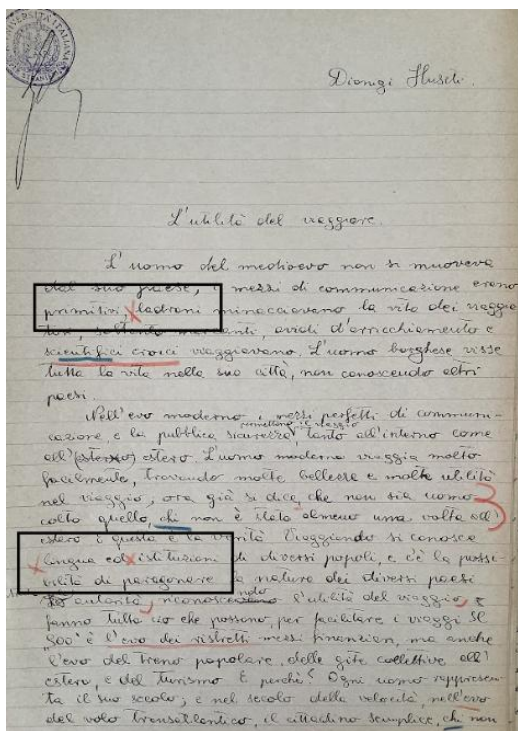 Dionigi Huszti.
L'utilità del viaggiare.
L'uomo del medioevo non si muoveva
dal suo paese, i mezzi di communicazione erano
primitivi, ladroni minacciavano la vita dei viaggia-
tori, soltanto mercanti, avidi d'arricchimento e
scientifici eroici viaggiavano. L'uomo borghese visse
tutta la vita nella sua città, non conoscendo altri
paesi.
Nell'evo moderno i mezzi perfetti di communi-
permettono il viaggio
cazione, e la pubblica sicurezza, tanto all'interno come
all' (esterno) estero. L'uomo moderno viaggia molto
facilmente, trovando molte bellezze e molte utilità
nel viaggio, ora già si dice, che non sia uomo
colto quello, chi non è stato almeno una volta all'
estero e questa è la verità. Viaggiando si conosce
lingua ed istituzioni di diversi popoli, e c'è la possi-
bilità di paragonare la natura dei diversi paesi
autorità riconoscendo l'utilità del viaggio,
fanno tutto ciò che possono, per facilitare i viaggi Il
'900 è l'evo dei ristretti mezzi finanziari, ma anche
l'evo del treno popolare, delle gite collettive all'
estero, e del turismo E perchè? Ogni uomo rappresen-
ta il suo secolo, e nel secolo della velocità, nell'evo
del volo transatlantico, il cittadino semplice, chi non